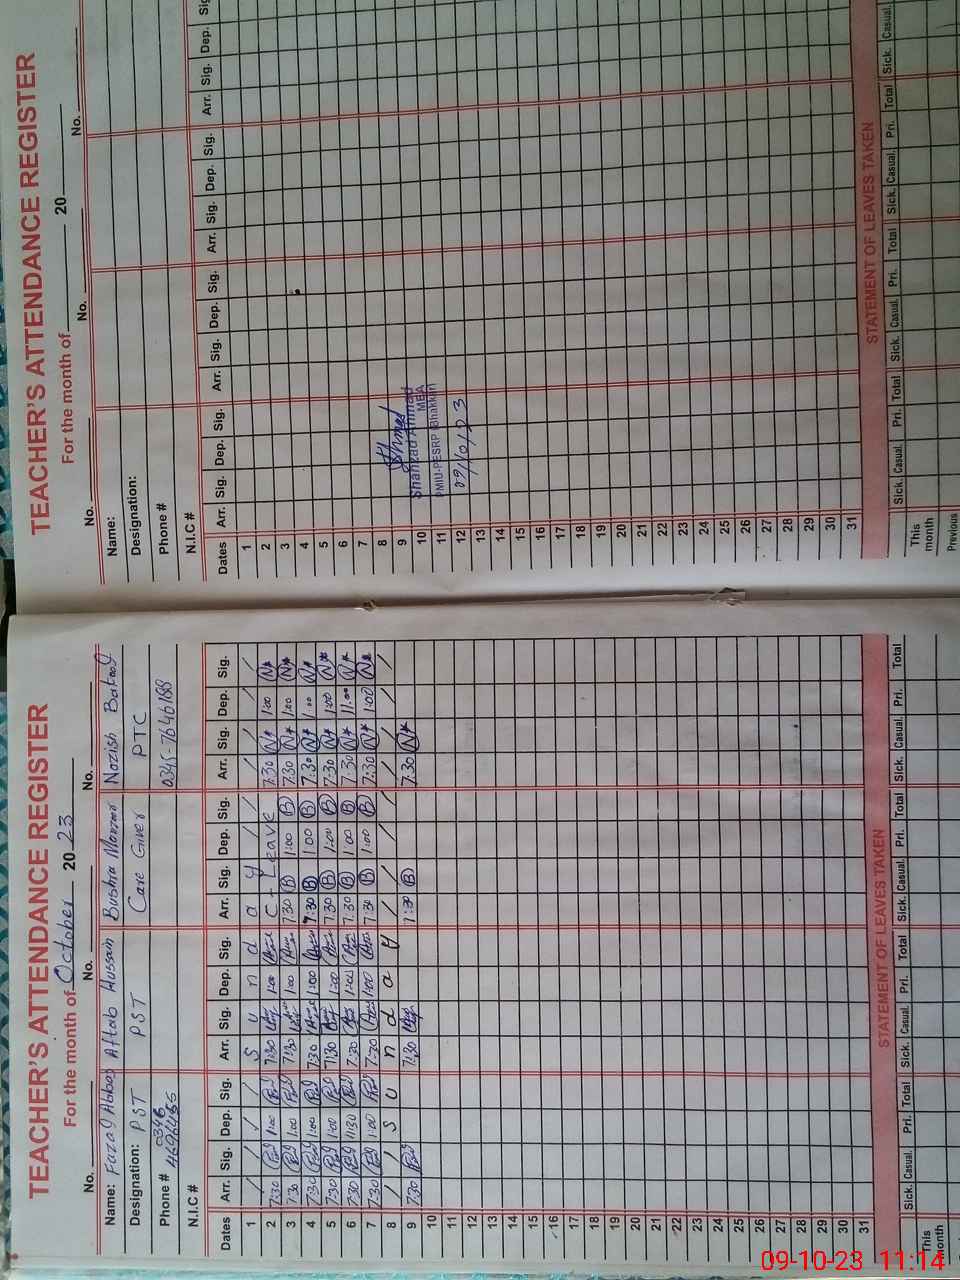 TEACHER'S ATTENDANCE REGISTER
For the month of October 20 23
No. No. No. No.
Name: Fazal Abbas Aftab Hussain Bushra Manzoor Nazish Batool
Designation: PST PST Care Giver PTC
Phone # 0346 4696455 0345-7646188
N.I.C #
Dates Arr. Sig. Dep. Sig. Arr. Sig. Dep. Sig. Arr. Sig. Dep. Sig. Arr. Sig. Dep. Sig.
1 S u n d a y
2 7:30 1:00 7:30 1:00 C - Leave 7:30 1:00
3 7:30 1:00 7:30 1:00 7:30 B 1:00 B 7:30 1:00
4 7:30 1:00 7:30 1:00 7:30 B 1:00 B 7:30 1:00
5 7:30 1:00 7:30 1:00 7:30 B 1:00 B 7:30 1:00
6 7:30 11:30 7:30 1:00 7:30 B 1:00 B 7:30 11:00
7 7:30 1:00 7:30 1:00 7:30 B 1:00 B 7:30 1:00
8 S u n d a y
9 7:30 7:30 7:30 B 7:30
10
11
12
13
14
15
16
17
18
19
20
21
22
23
24
25
26
27
28
29
30
31
STATEMENT OF LEAVES TAKEN
Sick. Casual. Pri. Total Sick. Casual. Pri. Total Sick. Casual. Pri. Total Sick. Casual. Pri. Total
This month
TEACHER'S ATTENDANCE REGISTER
For the month of 20
No. No. No.
Name:
Designation:
Phone #
N.I.C #
Dates Arr. Sig. Dep. Sig. Arr. Sig. Dep. Sig. Arr. Sig. Dep. Sig. Arr. Sig. Dep. Sig.
1
2
3
4
5
6
7
8
9
10
11
12
13
14
15
16
17
18
19
20
21
22
23
24
25
26
27
28
29
30
31
Shahzad Ahmad
MEA
PMIU-PESRP Bhakkar
09/10/23
STATEMENT OF LEAVES TAKEN
Sick. Casual. Pri. Total Sick. Casual. Pri. Total Sick. Casual. Pri. Total Sick. Casual.
This month
Previous
09-10-23 11:14